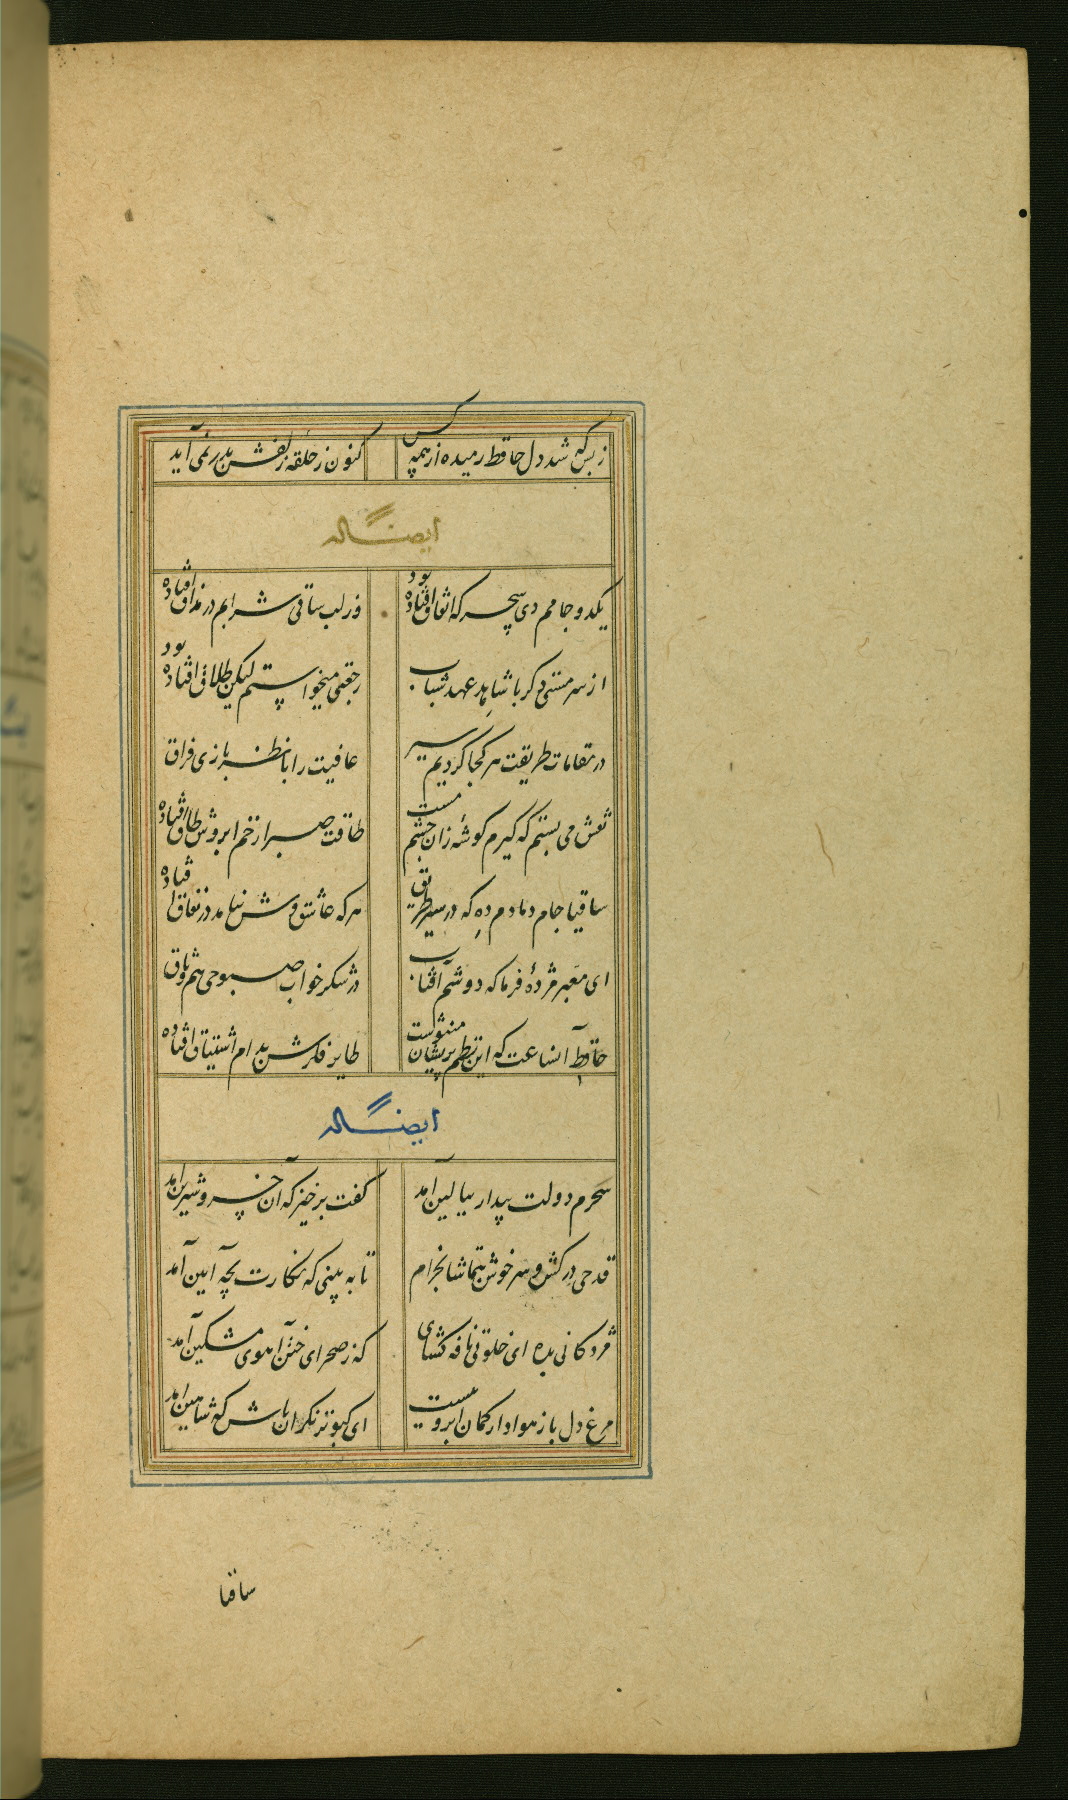 ز بس که شد دل حافظ رمیده از همه کس
کنون ز حلقه زلفش بدر نمی آید
ایضا له
یکدو جامم دی سحرکه اتفاق افتاده بود
وز لب ساقی شرابم در مذاق افتاده بود
از سر مستی دکر با شاهد عهد شباب
رجعتی میخواستم لیکن طلاق افتاده بود
در مقامات طریقت هر کجا کردیم سیر
عافیت را با نظر بازی فراق
نقش می بستم که کیرم کوشه زان چشم مست
طاقت صبر از خم ابروش طاق افتاده
ساقیا جام دمادم ده که در سیر طریق
هر که عاشق وش نیامد در نفاق افتاده
ای معبر مژده فرما که دوشم آفتاب
در شکر خواب صبوحی هم وثاق
حافظ آنساعت که این نظم پریشان مینوشت
طایر فکرش بدام اشتیاق افتاده
ایضا له
سحرم دولت بیدار ببالین آمد
کفت برخیز که آن خسرو شیرین آمد
قدحی درکش و سر خوش بتماشا بخرام
تا به بینی که نکارت بچه آیین آمد
مژدکانی بده ای خلوتی نافه کشای
که ز صحرای ختن آهوی مشکین آمد
مرغ دل باز هوادار کمان ابرویست
ای کبوتر نکران باش که شاهین آمد
ساقیا